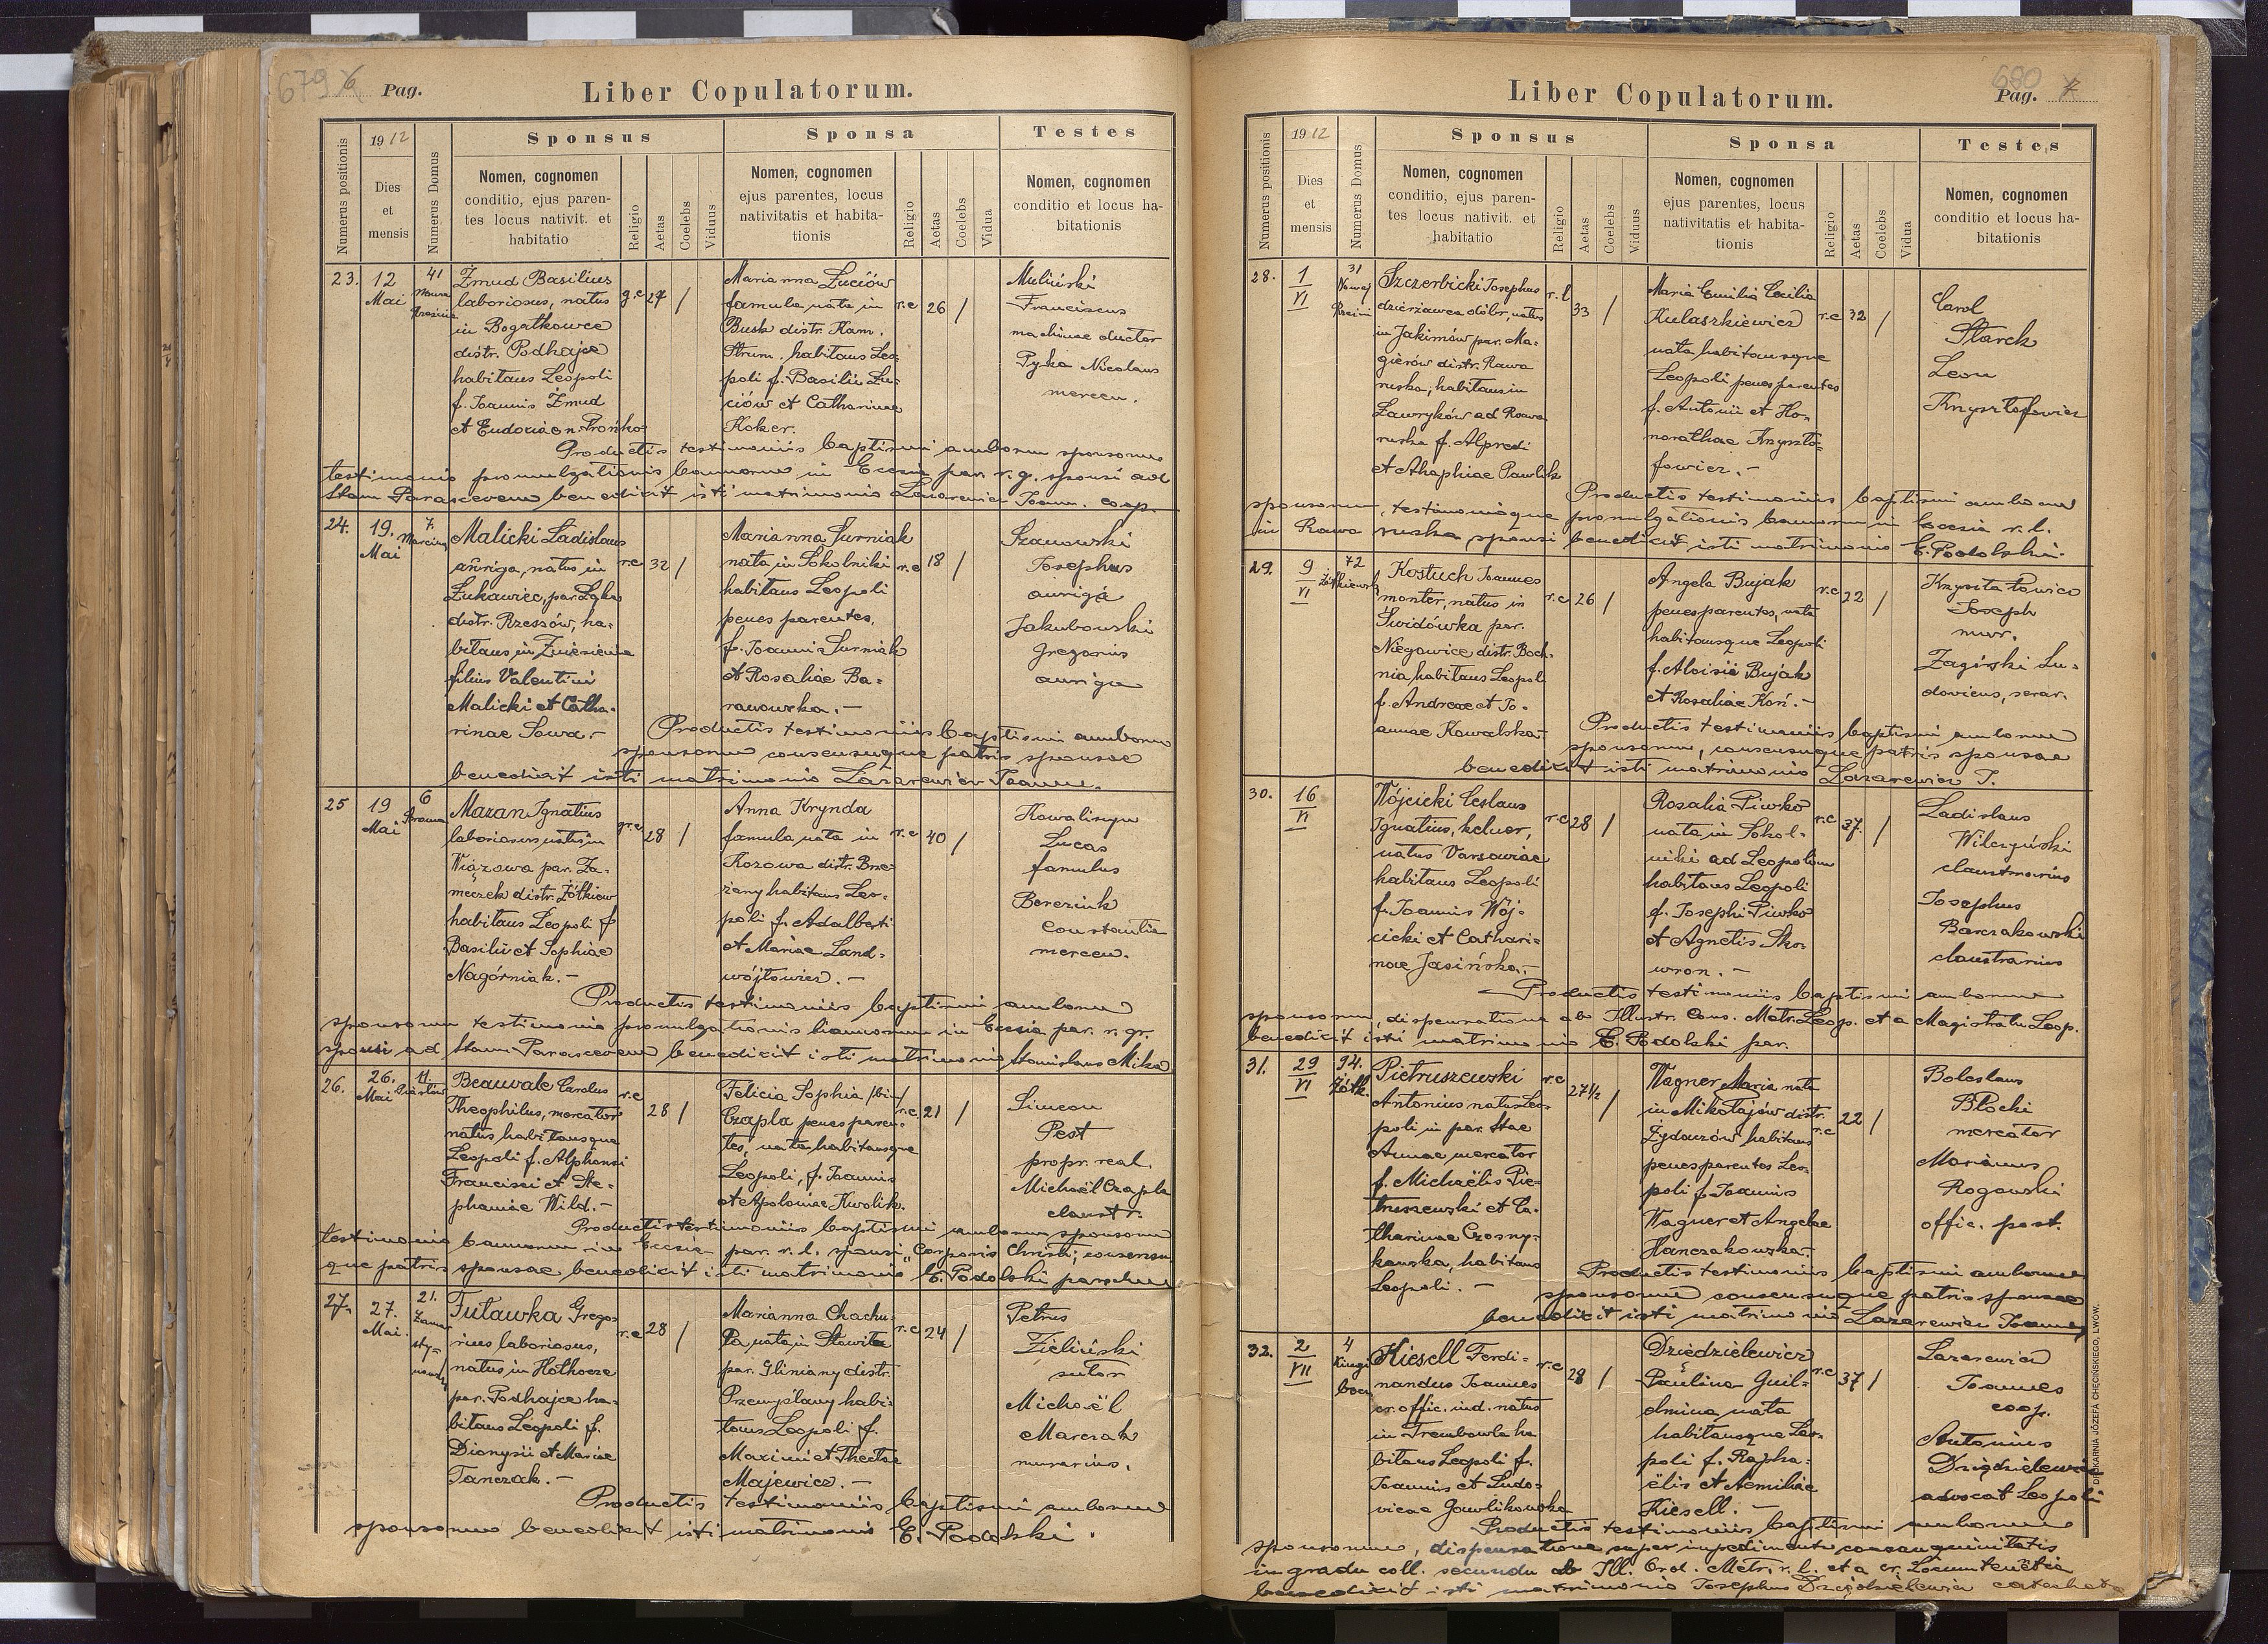 679 6 Pag.
Liber Copulatorum.
Numerus positionis
1912
Dies
et
mensis
Numerus Domus
Sponsus
Nomen, cognomen
conditio, ejus paren-
tes locus nativit. et
habitatio
Religio
Aetas
Coelebs
Vidus
Sponsa
Nomen, cognomen
ejus parentes, locus
nativitatis et habita-
tionis
Religio
Aetas
Coelebs
Vidua
Testes
Nomen, cognomen
conditio et locus ha-
bitationis
23.
12
Mai
41
Żmud Basilius
laboriosus, natus
in Bogatkowce
distr. Podhajce
habitans Leopoli
f. Joannis Żmud
et Eudoxiae n. Prońko
g.c
27
/
Marianna Łuciów
famula nata in
Busk distr. Kam.
Strum. habitans Leo-
poli f. Basilii Łu-
ciów et Catharinae
Koker.
r.c
26
/
Muliński
Franciscus
machinae ductor
Pyka Nicolaus
mercen.
Productis testimoniis baptismi amborum sponsorum
testimonio promulgationis bannorum in Ecclesia par. r. g. sponsi ad
Stam Parascevem benedixit isti matrimonio Lazarewicz Joann. coop.
24.
19.
Mai
7.
Marcina
Malicki Ladislaus
auriga, natus in
Łukawiec, par. Łąka
distr. Rzeszów, ha-
bitans in Zniesienie
filius Valentini
Malicki et Catha-
rinae Sowa.-
r.c
32
/
Marianna Surniak
nata in Sokolniki
habitans Leopoli
penes parentes,
f. Joannis Surniak
et Rosaliae Ba-
ranowska.-
r.c
18
/
Szanowski
Josephus
auriga
Jakubowski
Gregorius
auriga
Productis testimoniis baptismi amborum
sponsorum consensuque patris sponsae
benedixit isti matrimonio Lazarewicz Joann.
25
19
Mai
6
Mazan Ignatius
laboriosus natus in
Wiązowa par. Za-
meczek distr. Żółkiew
habitans Leopoli f
Basilii et Sophiae
Nagórniak.-
gr.c
28
/
Anna Krynda
famula nata in
Kozowa distr. Brze-
żany habitans Leo-
poli f. Adalberti
et Mariae Land-
wójtowicz.-
r.c
40
/
Kowaliszyn
Lucas
famulus
Bereziuk
Constantin
mercen.
Productis testimoniis baptismi amborum
sponsorum testimonio promulgationis bannorum in Ecclesia par. r. gr.
sponsi ad Stam Parascevem benedixit isti matrimonio Stanislaus Mika
26.
26.
Mai
11.
Piastów
Beauvale Carolus
Theophilus, mercator
natus habitansque
Leopoli f. Alphonsi
Francisci et Ste-
phaniae Wild.-
r.c
28
/
Felicia Sophia /bin/
Czapla penes paren-
tes, nata habitansque
Leopoli, f. Joannis
et Apoloniae Kwolik.
r.c
21
/
Simeon
Pest
propr. real.
Michaël Czapla
claustr.
Productis testimoniis baptismi amborum sponsorum
testimonio bannorum in Ecclesia par. r. l. sponsi "Corporis Christi", consensu
que patris sponsae benedixit isti matrimonio E. Podolski parochus
27.
27.
Mai.
21.
Futawka Grego-
rius laboriosus,
natus in Hołhocze
par. Podhajce ha-
bitans Leopoli f.
Dionysii et Mariae
Tanczak.-
r.c
28
/
Marianna Chachu-
ła nata in Stawita
par. Gliniany distr.
Przemyślany habi-
tans Leopoli f.
Maximi et Theclae
Majewicz.-
r.c
24
/
Petrus
Zieliński
sutor
Michaël
Marczak
murarius.
Productis testimoniis baptismi amborum
sponsorum benedixit isti matrimonio E. Podolski.
680 Pag. 7
Liber Copulatorum.
Numerus positionis
1912
Dies
et
mensis
Numerus Domus
Sponsus
Nomen, cognomen
conditio, ejus paren-
tes locus nativit. et
habitatio
Religio
Aetas
Coelebs
Vidus
Sponsa
Nomen, cognomen
ejus parentes, locus
nativitatis et habita-
tionis
Religio
Aetas
Coelebs
Vidua
Testes
Nomen, cognomen
conditio et locus ha-
bitationis
28.
1
VI
31
Szczerbicki Josephus
dzierżawca dóbr, natus
in Jakimów par. Ma-
gierów distr. Rawa
ruska, habitans in
Ławryków ad Rawa
ruska f. Alfredi
et Ahaphiae Pawlik
r. l
33
/
Maria Emilia Cecilia
Kulaszkiewicz
nata habitansque
Leopoli penes parentes
f. Antonii et Ho-
norathae Krzyszto-
fowicz.-
r.c
32
/
Carol
Starck
Leon
Krzysztofowicz
Productis testimoniis baptismi amborum
sponsorum, testimonioque promulgationis bannorum in Ecclesia r. l.
in Rawa ruska sponsi benedixit isti matrimonio E. Podolski.
29.
9
VI
72
Kostuch Joannes
monter, natus in
Świdówka par.
Niegowice distr. Boch-
nia habitans Leopoli
f. Andreae et Jo-
annae Kowalska-
r.c
26
/
Angela Bujak
penes parentes, nata
habitansque Leopoli
f. Aloisii Bujak
et Rosaliae Koń.-
r.c
22
/
Joseph
mur.
Zagórski Lu-
dovicus, serar.
Productis testimoniis baptismi amborum
sponsorum, consensuque patris sponsae
benedixit isti matrimonio Lazarewicz J.
30.
16
VI
Wójcicki Ceslaus
Ignatius, kelner,
natus Varsoviae
habitans Leopoli
f. Joannis Wój-
cicki et Cathari-
nae Jasińska.-
r.c
28
/
Rosalia Piwko
nata in Sokol-
niki ad Leopolim
habitans Leopoli
f. Josephi Piwko
et Agnetis Sko-
wron.-
r.c
37.
/
Ladislaus
Wilczyński
claustrarius
Josephus
Barczakowski
claustrarius
Productis testimoniis baptismi amborum
sponsorum, dispensatione ab Illustr. Cons. Metr. Leop. et a Magistratu Leop.
benedixit isti matrimonio E. Podolski par.
31.
29
VI
94.
Żółk.
Pietruszewski
Antonius natus Leo-
poli in par. Stae
Annae mercator
f. Michaëlis Pie-
truszewski et Ca-
tharinae Czosny-
kowska, habitans
Leopoli.-
r.c
27 1/2
/
Wagner Maria nata
in Mikołajów distr.
Żydaczów habitans
penes parentes Leo-
poli f. Joannis
Wagner et Angelae
Hanczakowska.-
r.c
22
/
Boleslaus
Błocki
mercator
Marianus
Rogowski
offic. post.
Productis testimoniis baptismi amborum
sponsorum consensuque patris sponsae
benedixit isti matrimonio Lazarewicz Joannes
32.
2
VII
4
Kiesell Ferdi-
nandus Joannes
cr. offic. iud. natus
in Trembowla ha-
bitans Leopoli f.
Joannis et Ludo-
vicae Gawlikowska
r.c
28
/
Dziędzielewicz
Paulina Guil-
elmina nata
habitansque Leo-
poli f. Rapha-
ëlis et Aemiliae
Kiesell.-
r.c
37
/
Lazarewicz
Joannes
coop.
Antonius
Dzigdzielewicz
advocat Leopoli
Productis testimoniis baptismi amborum
sponsorum, dispensatione super impedimento consanguinitatis
in gradu coll. secundo ab Ill. Ord. Metr. r. l. et a cr. Locumtenentia
benedixit isti matrimonio Josephus Dzigdzielewicz catecheta
DRUKARNIA JÓZEFA CHĘCIŃSKIEGO, LWÓW.